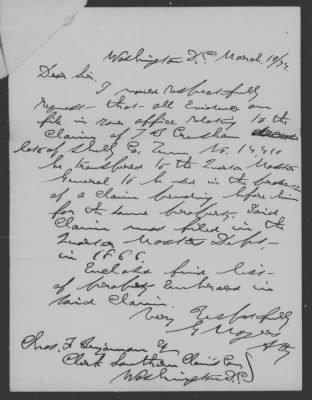 Washington D.C. March 10/74.
Dear Sir.
I would respectfully
request - that - all Evidence on
file in your office relating to the
Claim of T B Crenshaw
late of Shelby Co. Tenn No. 14,410
be transferred to the Quarter Master
General to be used in the
of a Claim pending before him
for the same property. Said
Claim was filed in the
Quarter Masters Dept -
in 1866.
Enclosed find list -
of property Embraced in
said Claim.
Very Respectfully
G Rogers
Atty
Chas. F. Benjamin Esq
Clerk Southern Claims Com
Washington D.C.